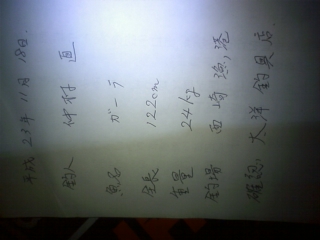 平成 23年 11月 18日.
釣人 仲村 直
魚名 ガーラ
全長 122cm
重量 24kg
釣場 西崎漁港
確認, 大洋釣具店.